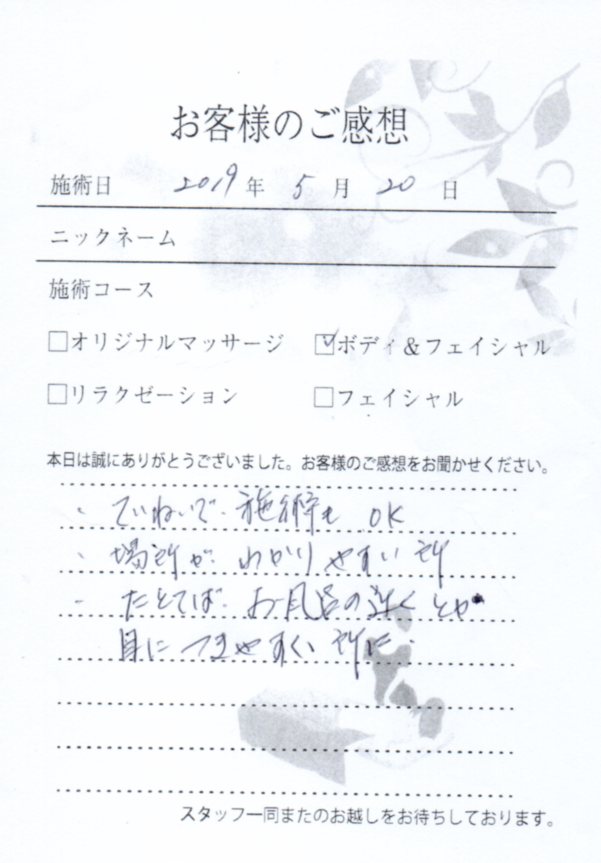 お客様のご感想
施術日 2019年 5月 20日
ニックネーム
施術コース
□オリジナルマッサージ ☑ボディ&フェイシャル
□リラクゼーション □フェイシャル
本日は誠にありがとうございました。お客様のご感想をお聞かせください。
、ていねいで、施術も OK
、場所が、わかりやすい所
- たとえば、お風呂の近くとか
目につきやすい所に、
スタッフ一同またのお越しをお待ちしております。